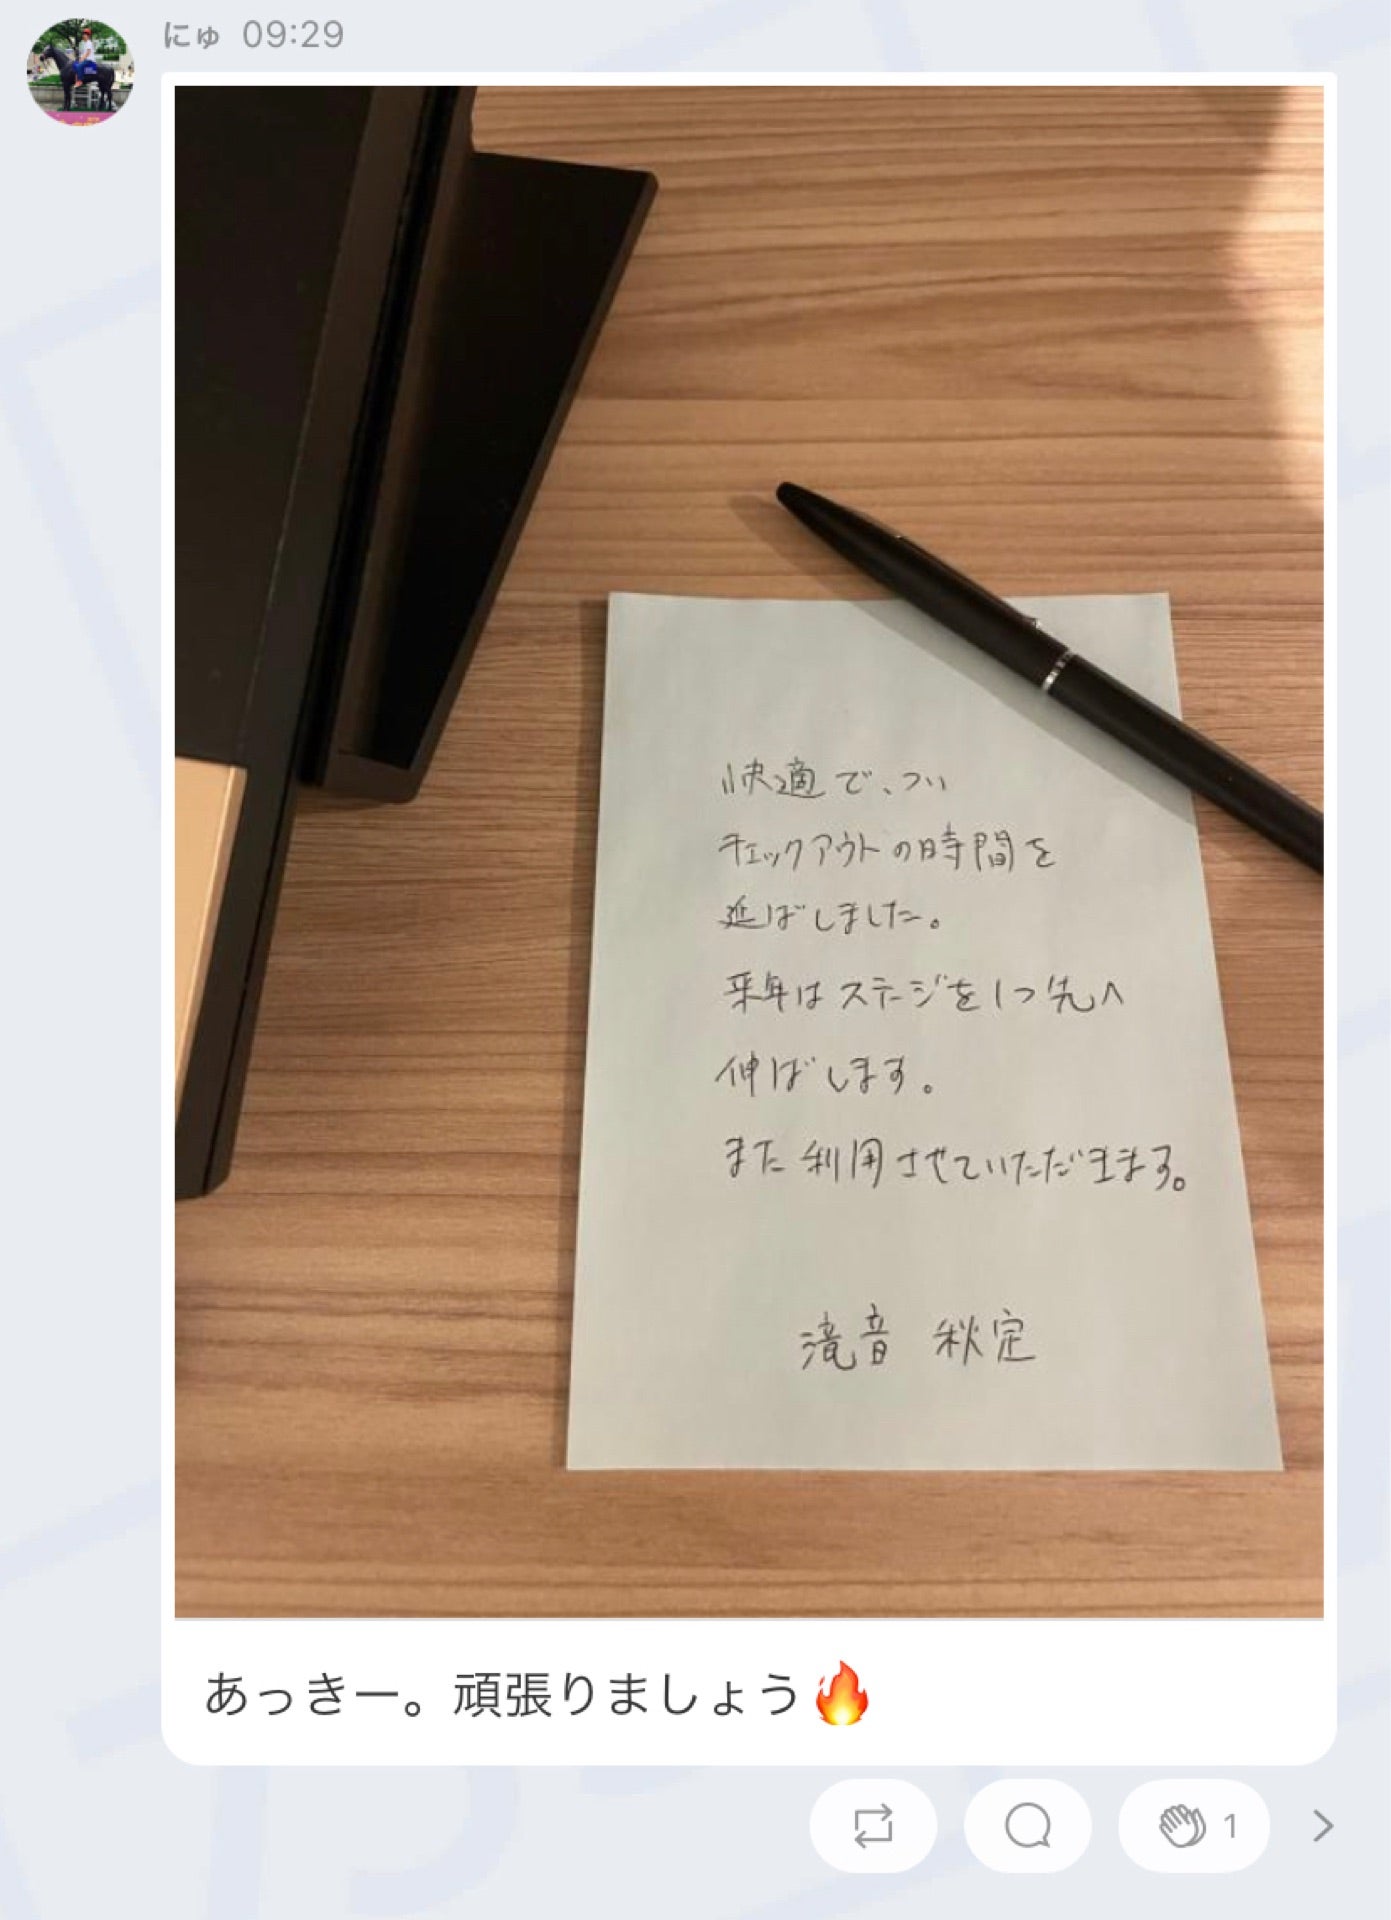 にゅ 09:29
快適で、つい
チェックアウトの時間を
延ばしました。
来年はステージを1つ先へ
伸ばします。
また利用させていただきます。
滝音 秋定
あっきー。頑張りましょう🔥
1